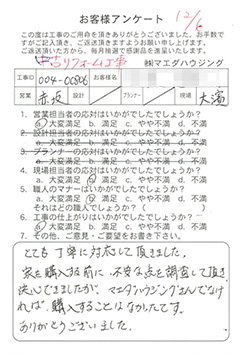 お客様アンケート
12/5
この度は工事のご用命を頂きありがとうございました。お手数で
すがご記入頂き、ご返送頂けますようお願い申し上げます。
ご返送頂いた方から、毎月抽選で感謝品を進呈いたします。
中古リフォーム工事 ㈱マエダハウジング
工事ID 004-00806 お客様名
営業 赤坂 設計 プランナー 現場 大濱
1. 営業担当者の応対はいかがでしたでしょうか?
a 大変満足 b 満足 c やや不満 d 不満
2. 設計担当者の応対はいかがでしたでしょうか?
a 大変満足 b 満足 c やや不満 d 不満
3. プランナーの応対はいかがでしたでしょうか?
a 大変満足 b 満足 c やや不満 d 不満
4. 現場担当者の応対はいかがでしたでしょうか?
a 大変満足 b 満足 c やや不満 d 不満
5. 職人のマナーはいかがでしたでしょうか?
a 大変満足 b 満足 c やや不満 d 不満
それはどの職人でしょうか?( )
6. 工事の仕上がりはいかがでしたでしょうか?
a 大変満足 b 満足 c やや不満 d 不満
7. その他、ご意見・ご要望をお書き下さい。
とても丁寧に対応して頂きました。
家を購入する前に不安な点を調査して頂き
決心できましたが、マエダハウジングさんでなけ
れば、購入することはなかったです。
ありがとうございました。